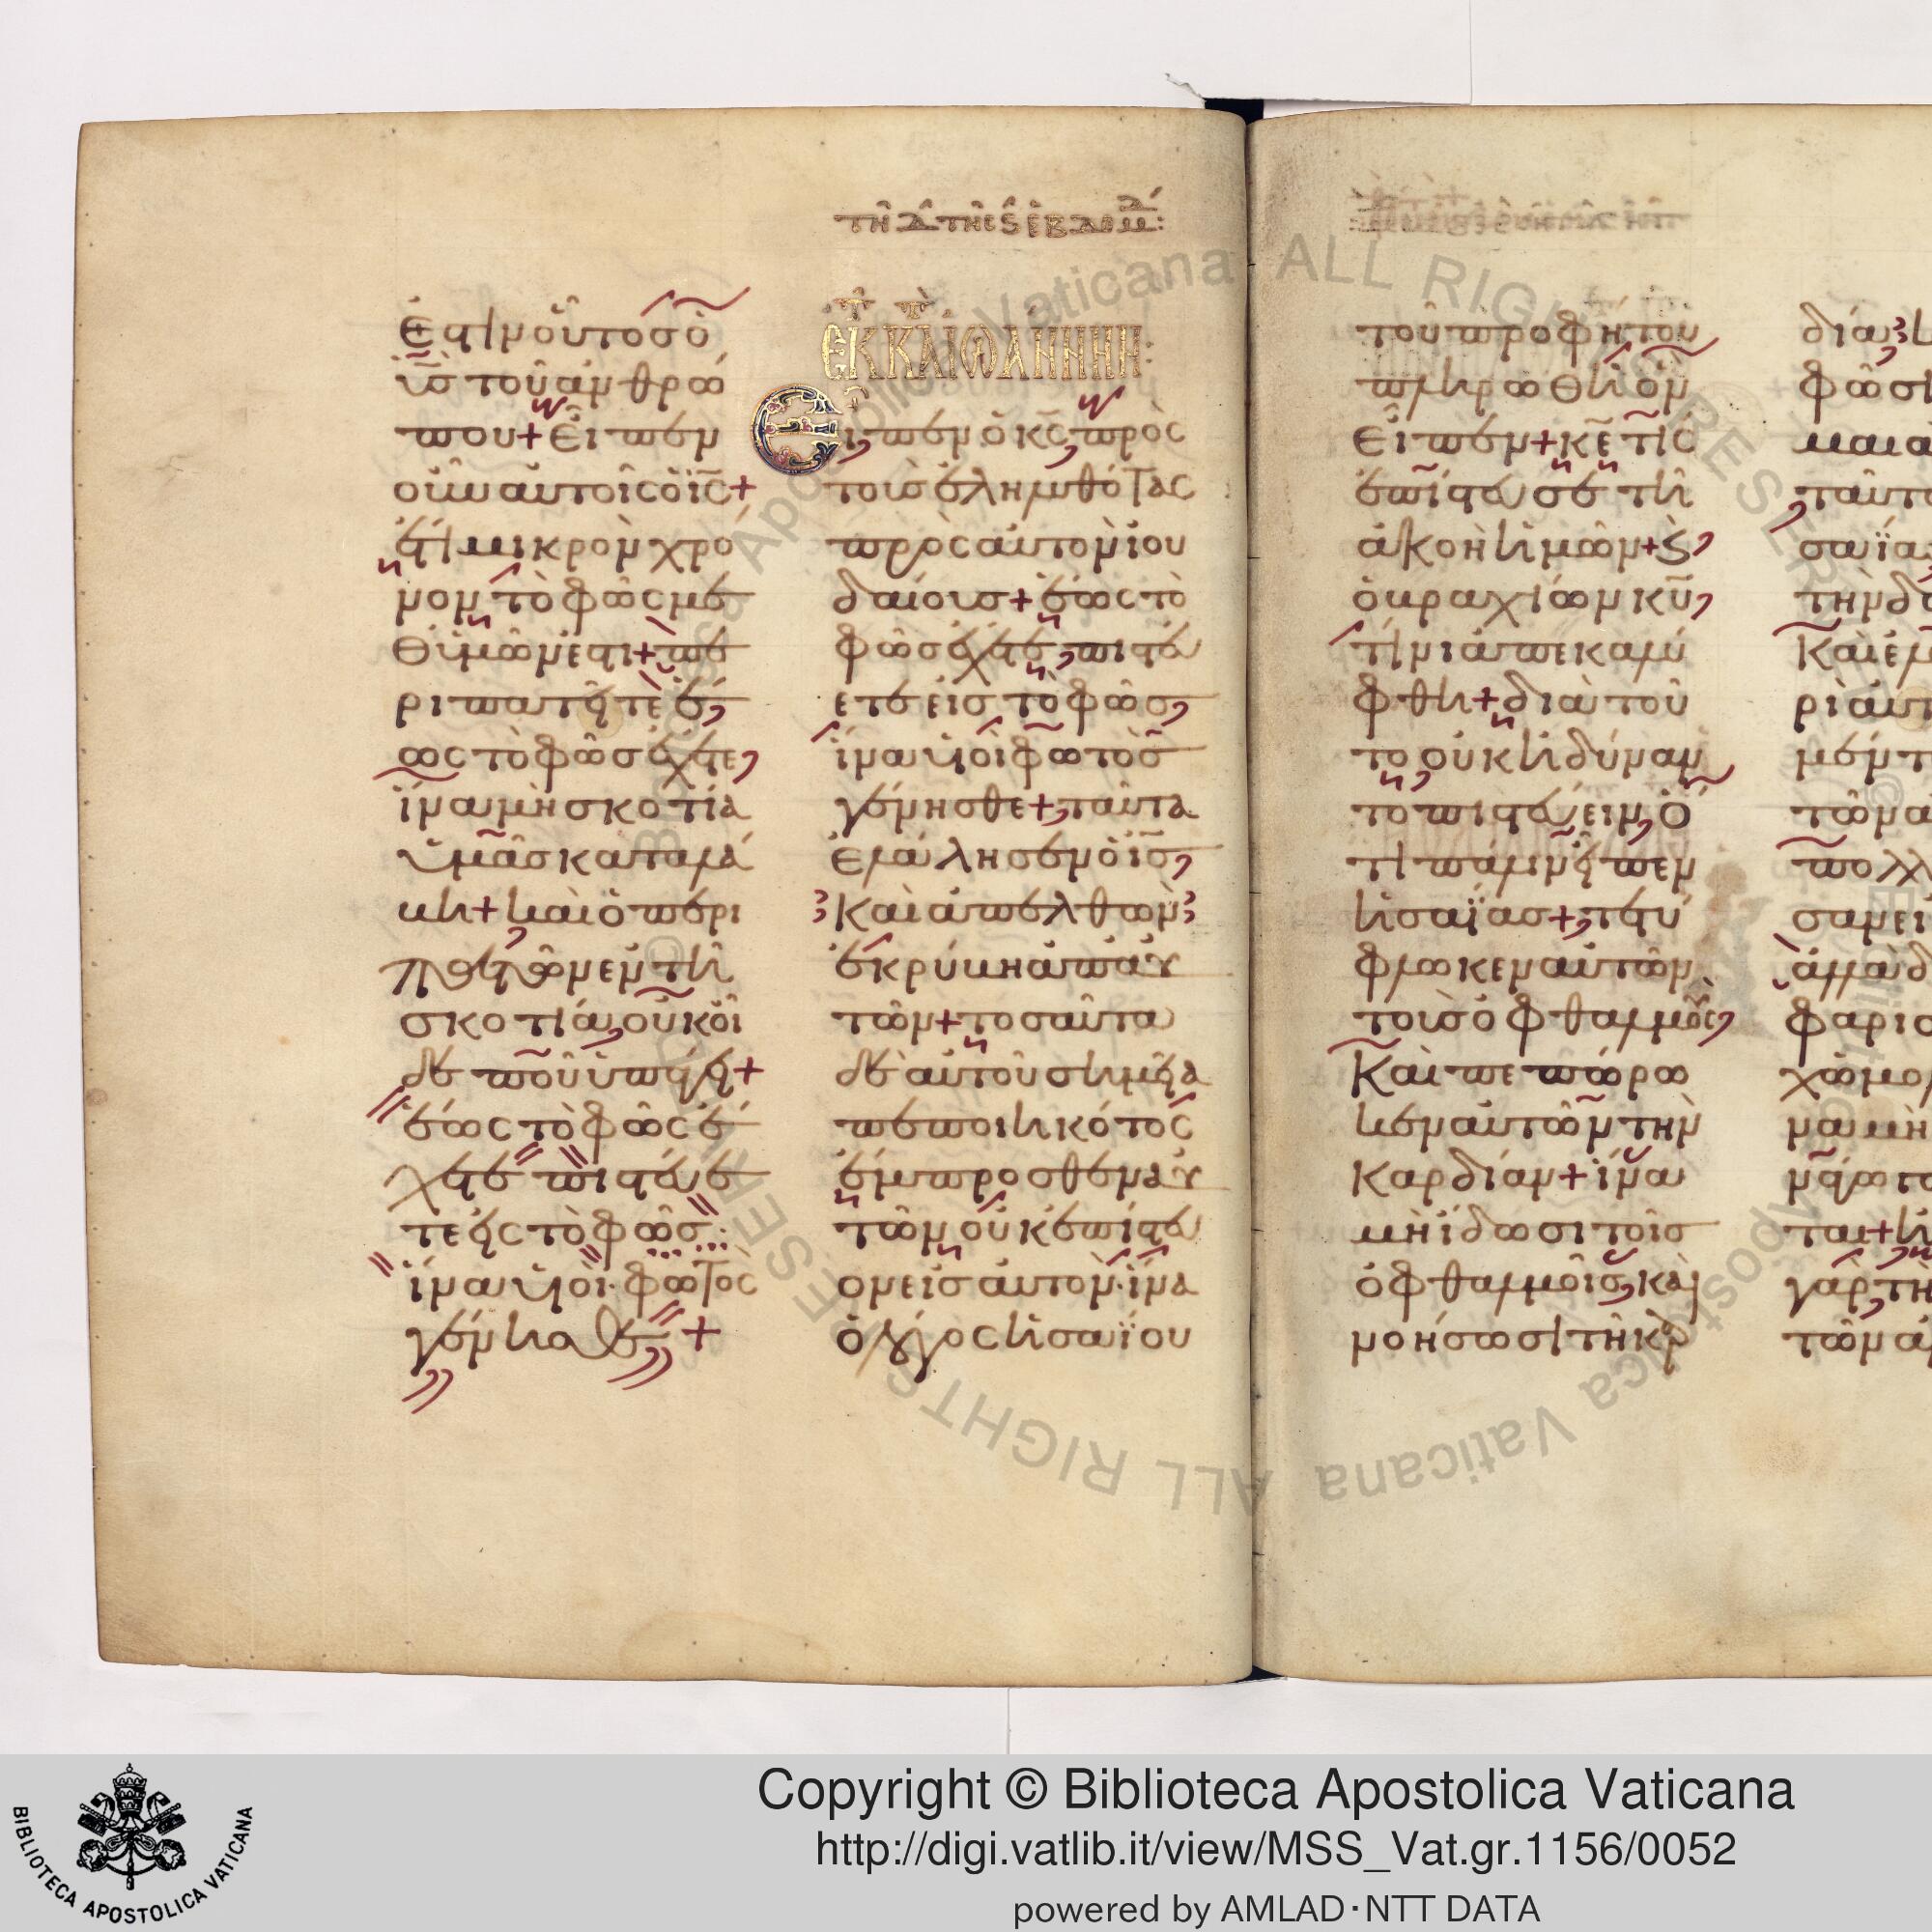 τῆ δ̂ τῆς ς̂ ἑβδομάδ:
ἐστιν οὗτος ὁ
ῡς τοῦ ἀνθρώ
που + εἶπεν
οὖν αὐτοῖς ὁ ῑς +
ἔτι μικρὸν χρό
νον τὸ φῶς με
θ' ὑμῶν ἐστι + πε
ριπατεῖτε ἕ
ως τὸ φῶς ἔχετε,
ἵνα μὴ σκοτία
ὑμᾶς καταλά
βη + καὶ ὁ περι
πατῶν ἐν τῆ
σκοτία, οὐκ οἶ
δε ποῦ ὑπάγει +
ἕως τὸ φῶς ἔ
χετε πιστεύε
τε εἰς τὸ φῶς.
ἵνα υἱοὶ φωτὸς
γένησθε +
ἐκ τοῦ κατὰ ἰωάννην:
Εἶπεν ὁ κ̄ς, πρὸς
τοὺς ἐληλυθότας
πρὸς αὐτὸν ἰου
δαίους + ἕως τὸ
φῶς ἔχετε, πιστεύ
ετε εἰς τὸ φῶς,
ἵνα υἱοὶ φωτὸς
γένησθε + ταῦτα
ἐλάλησεν ὁ ῑς,
καὶ ἀπελθὼν
ἐκρύβη ἀπ' αὐ
τῶν + τοσαῦτα
δὲ αὐτοῦ σημεῖα
πεποιηκότος
ἔμπροσθεν αὐ
τῶν οὐκ ἐπίστευ
ον εἰς αὐτόν· ἵνα
ὁ λόγος ἡσαΐου
τοῦ προφήτου
πληρωθῆ ὃν
εἶπεν + κ̄ε τίς
ἐπίστευσε τῆ
ἀκοῆ ἡμῶν + ϗ
ὁ βραχίων κ̄υ,
τίνι ἀπεκαλύ
φθη + διὰ τοῦ
το οὐκ ἠδύναν
το πιστεύειν, ὅ
τι πάλιν εἶπεν
ἡσαΐας + τετύ
φλωκεν αὐτῶν
τοὺς ὀφθαλμούς,
καὶ πεπώρω
κεν αὐτῶν τὴν
καρδίαν + ἵνα
μὴ ἴδωσι τοῖς
ὀφθαλμοῖς, καὶ
νοήσωσι τῆ κρ
δία, 
φῶς
μαι α
ταῦτ
σαΐα
τὴν δό
καὶ ἐ
ρὶ αὐτ
μέντ
τῶν α
πολλ
σαν εἰ
ἀλλὰ δ
φαρισ
χὼμο
να μὴ
νάγω
ται + ἠ
γὰρ τὴ
τῶν ἀ
Copyright © Biblioteca Apostolica Vaticana
http://digi.vatlib.it/view/MSS_Vat.gr.1156/0052
powered by AMLAD·NTT DATA
BIBLIOTECA APOSTOLICA VATICANA